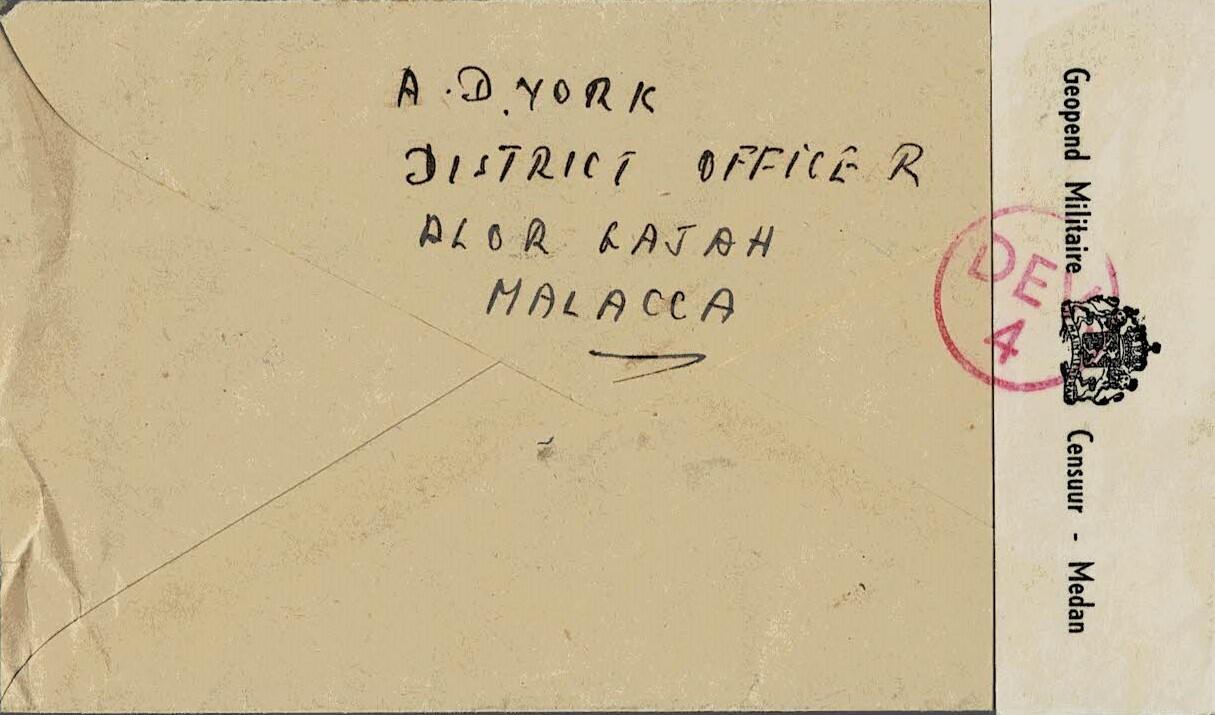 A.D.YORK
DISTRICT OFFICER
ALOR GAJAH
MALACCA
Geopend Militaire Censuur - Medan
DE
4